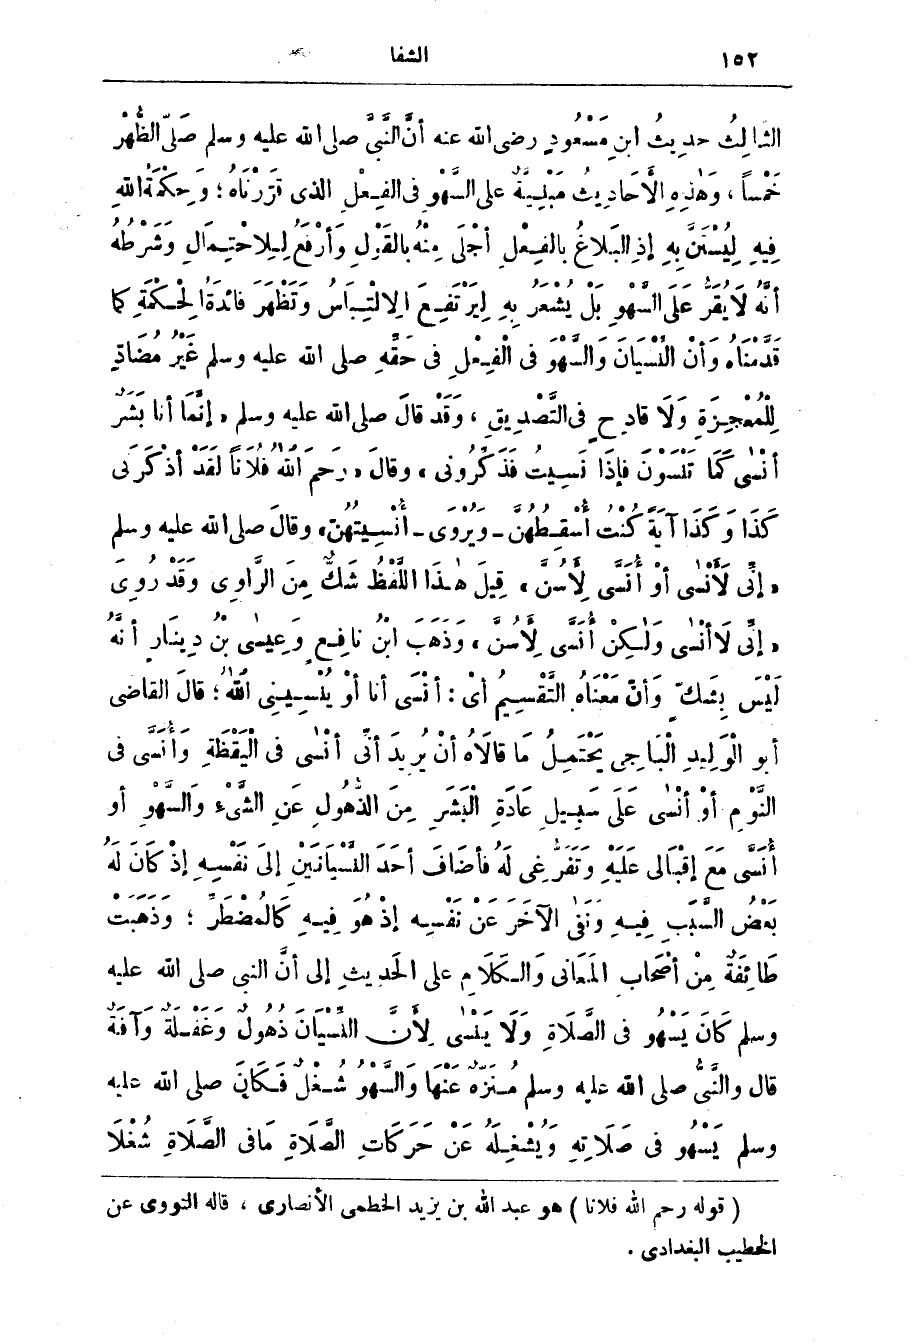 ١٥٢ الشفا
الثالِثُ حديثُ ابنِ مَسْعُودٍ رضى الله عنه أنَّ النَّبِىَّ صلى الله عليه وسلم صَلَّى الظُّهْرَ
خَمْساً ، وَهٰذِهِ الأَحَادِيثُ مَبْنِيَّةٌ على السَّهْوِ فى الفِعْلِ الذى قَرَّرْنَاهُ ؛ وَحِكْمَةُ اللهِ
فِيهِ لِيُسْتَنَّ بِهِ إذِ البَلَاغُ بالفِعْلِ أَجْلَى مِنْهُ بالقَوْلِ وَأَرْفَعُ لِلِاحْتِمَالِ وَشَرْطُهُ
أَنَّهُ لَا يُقَرُّ عَلَى السَّهْوِ بَلْ يُشْعَرُ بِهِ لِيَرْتَفِعَ الِالْتِبَاسُ وَتَظْهَرَ فَائدَةُ الْحِكْمَةِ كما
قَدَّمْنَاهُ وَأَنَّ النِّسْيَانَ وَالسَّهْوَ فى الْفِعْلِ فى حَقِّهِ صلى الله عليه وسلم غَيْرُ مُضَادٍّ
لِلْمُعْجِزَةِ وَلَا قادِحٍ فى التَّصْدِيقِ ، وَقَدْ قالَ صلى الله عليه وسلم « إنَّمَا أنا بَشَرٌ
أَنْسٰى كَمَا تَنْسَوْنَ فإذَا نَسِيتُ فَذَكِّرُونى » وقالَ « رَحِمَ اللهُ فُلَاناً لَقَدْ أَذْكَرَنى
كَذَا وَكَذَا آيَةً كُنْتُ أُسْقِطُهُنَّ - وَيُرْوَى - أُنْسِيتُهُنَّ » وقالَ صلى الله عليه وسلم
« إنِّى لَأَنْسٰى أوْ أُنَسَّى لِأَسُنَّ » قِيلَ هٰذَا اللَّفْظُ شَكٌّ مِنَ الرَّاوِى وَقَدْ رُوِىَ
« إنِّى لَا أَنْسٰى وَلٰكِنْ أُنَسَّى لِأَسُنَّ » وَذَهَبَ ابْنُ نافِعٍ وَعِيسٰى بْنُ دِينَارٍ أنَّهُ
لَيْسَ بِشَكٍّ وَأَنَّ مَعْنَاهُ التَّقْسِيمُ أىْ : أَنْسَى أنا أوْ يُنْسِينِى اللهُ ؛ قالَ القاضى
أبو الْوَلِيدِ الْبَاجِى يَحْتَمِلُ مَا قالَاهُ أنْ يُرِيدَ أَنِّى أَنْسٰى فى الْيَقْظَةِ وَأُنَسَّى فى
النَّوْمِ أوْ أَنْسٰى عَلَى سَبِيلِ عَادَةِ الْبَشَرِ مِنَ الذُّهُولِ عَنِ الشَّىْءِ وَالسَّهْوِ أو
أُنَسَّى مَعَ إقْبَالى عَلَيْهِ وَتَفَرُّغِى لَهُ فأَضَافَ أَحَدَ النِّسْيَانَيْنِ إلَى نَفْسِهِ إذْ كانَ لَهُ
بَعْضُ السَّبَبِ فِيهِ وَنَفَى الآخَرَ عَنْ نَفْسِهِ إذْ هُوَ فِيهِ كَالْمُضْطَرِّ ؛ وَذَهَبَتْ
طَائِفَةٌ مِنْ أَصْحَابِ المَعَانى وَالكَلَامِ على الحَدِيثِ إلى أنَّ النبى صلى الله عليه
وسلم كَانَ يَسْهُو فى الصَّلَاةِ وَلَا يَنْسٰى لِأَنَّ النِّسْيَانَ ذُهُولٌ وَغَفْلَةٌ وَآفَةٌ
قال والنَّبِىُّ صلى الله عليه وسلم مُنَزَّهٌ عَنْهَا وَالسَّهْوُ شُغْلٌ فَكَانَ صلى الله عليه
وسلم يَسْهُو فى صَلَاتِهِ وَيُشْغِلُهُ عَنْ حَرَكَاتِ الصَّلَاةِ مَافى الصَّلَاةِ شُغْلَا
( قوله رحم الله فلانا ) هو عبد الله بن يزيد الخطمى الأنصارى ، قاله النووى عن
الخطيب البغدادى .